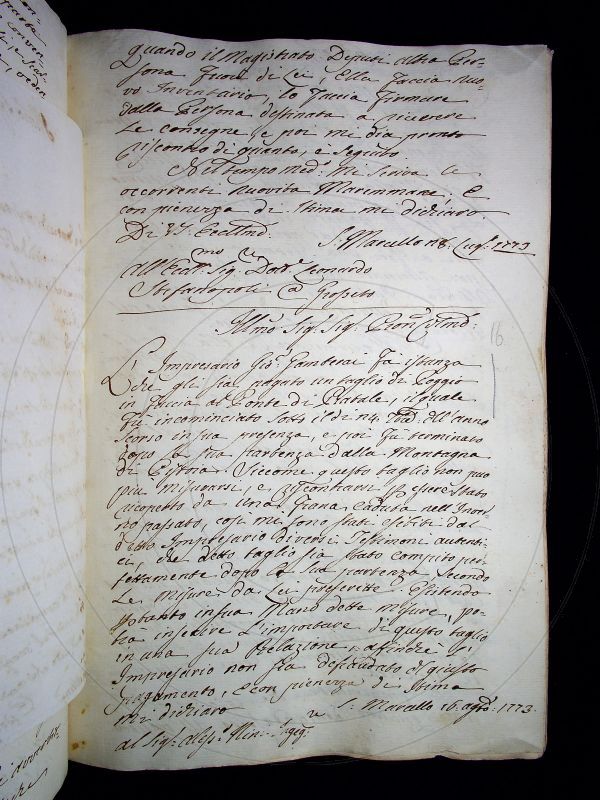 quando il Magistrato Deputi altra Per-
sona fuori di Lei, Ella faccia nuo-
vo Inventario, lo faccia firmare
dalla Persona destinata a ricevere
le consegne, e poi mi dia pronto
riscontro di quanto, è seguito
Nel tempo med.º mi scriva le
occorrenti nuovità Maremmane, e
con pienezza di stima mi dichiaro
Di V.S. Eccellmã
S. Marcello 18. Lug.º 1773
all'Eccmo Sig.re Dott.r Leonardo
Stefanopoli @ Grosseto
Illmo Sig.r Sig.r Pron Colmo
16
L'Impresario Gio. Gamberai fa istanza
che gli sia pagato un taglio di Poggio
in faccia al Ponte di Piatale, il quale
fù incominciato sotto il dì 24. 8bre dell'anno
scorso in sua presenza, e poi fu terminato
dopo la sua partenza dalla Montagna
di Pistoia. Siccome questo taglio non può
più misurarsi, e riscontrarsi p essere stato
ricoperto da una frana caduta nell'Inver-
no passato, così mi sono stati esibiti dal
detto Impresario diversi Testimoni autenti-
ci, che detto taglio sia stato compito per-
fettamente dopo la sua partenza secondo
le misure da Lei prescritte. Esistendo
ptanto in sua Mano dette misure, po-
trà inserire l'importare di questo taglio
in una sua Relazione, affinchè l'
Impresario non sia defraudato del giusto
pagamento, e con pienezza di stima
mi dichiaro
S. Marcello 16. agto 1773.
al Sig.r Aless.º Nini Ing.re